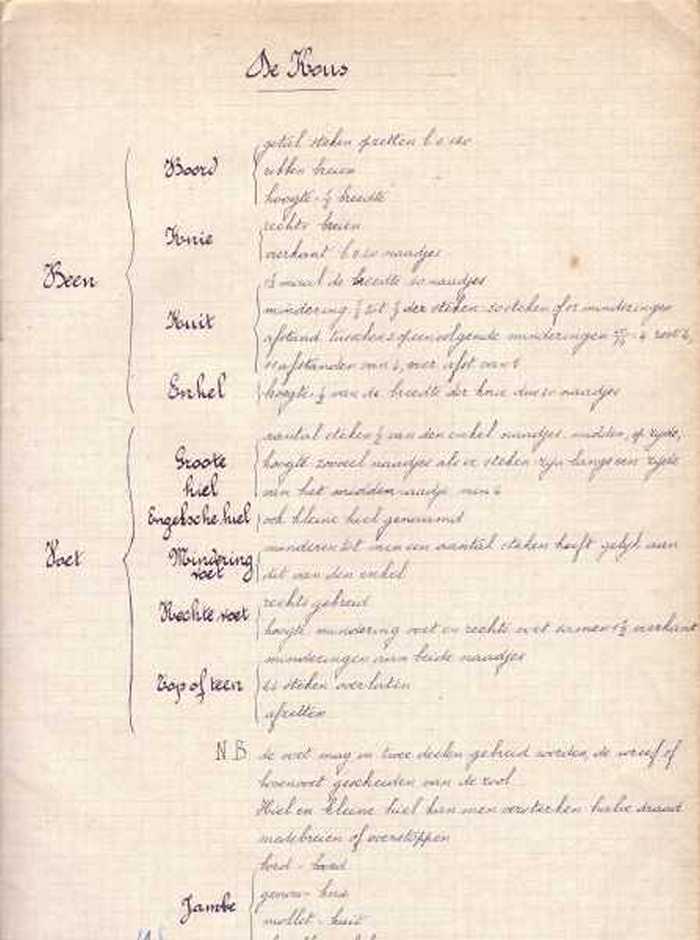 De Kous
Been
Boord
getal steken opzetten b.v. 120
ribben breien
hoogte = ½ breedte
Knie
rechts breien
vierkant b.v. 50 naadjes
Kuit
maal de breedte naadjes
mindering tot der steken = steken of minderingen
afstand tusschen 2 opeenvolgende minderingen
afstanden van over
Enkel
hoogte ½ van de breedte der knie dus naadjes
Voet
Groote hiel
aantal steken ½ van den enkel naadjes midden, op zijde,
hoogte zooveel naadjes als er steken zijn langs een zijde
van het midden naadje min
Engelsche hiel
ook kleine hiel genaamd
Mindering voet
minderen tot men een aantal steken heeft gelijk aan
dit van den enkel
Rechte voet
rechts gebreid
hoogte mindering voet en rechte voet samen 1½ vierkant
Top of teen
minderingen aan beide naadjes
steken overlaten
afzetten
N.B. de voet mag in twee deelen gebreid worden, de wreef of
bovenvoet gescheiden van de zool
Hiel en kleine hiel kan men versterken halve draad
medebreien of overstoppen
Jambe
bord - boord
genou - knie
mollet - kuit